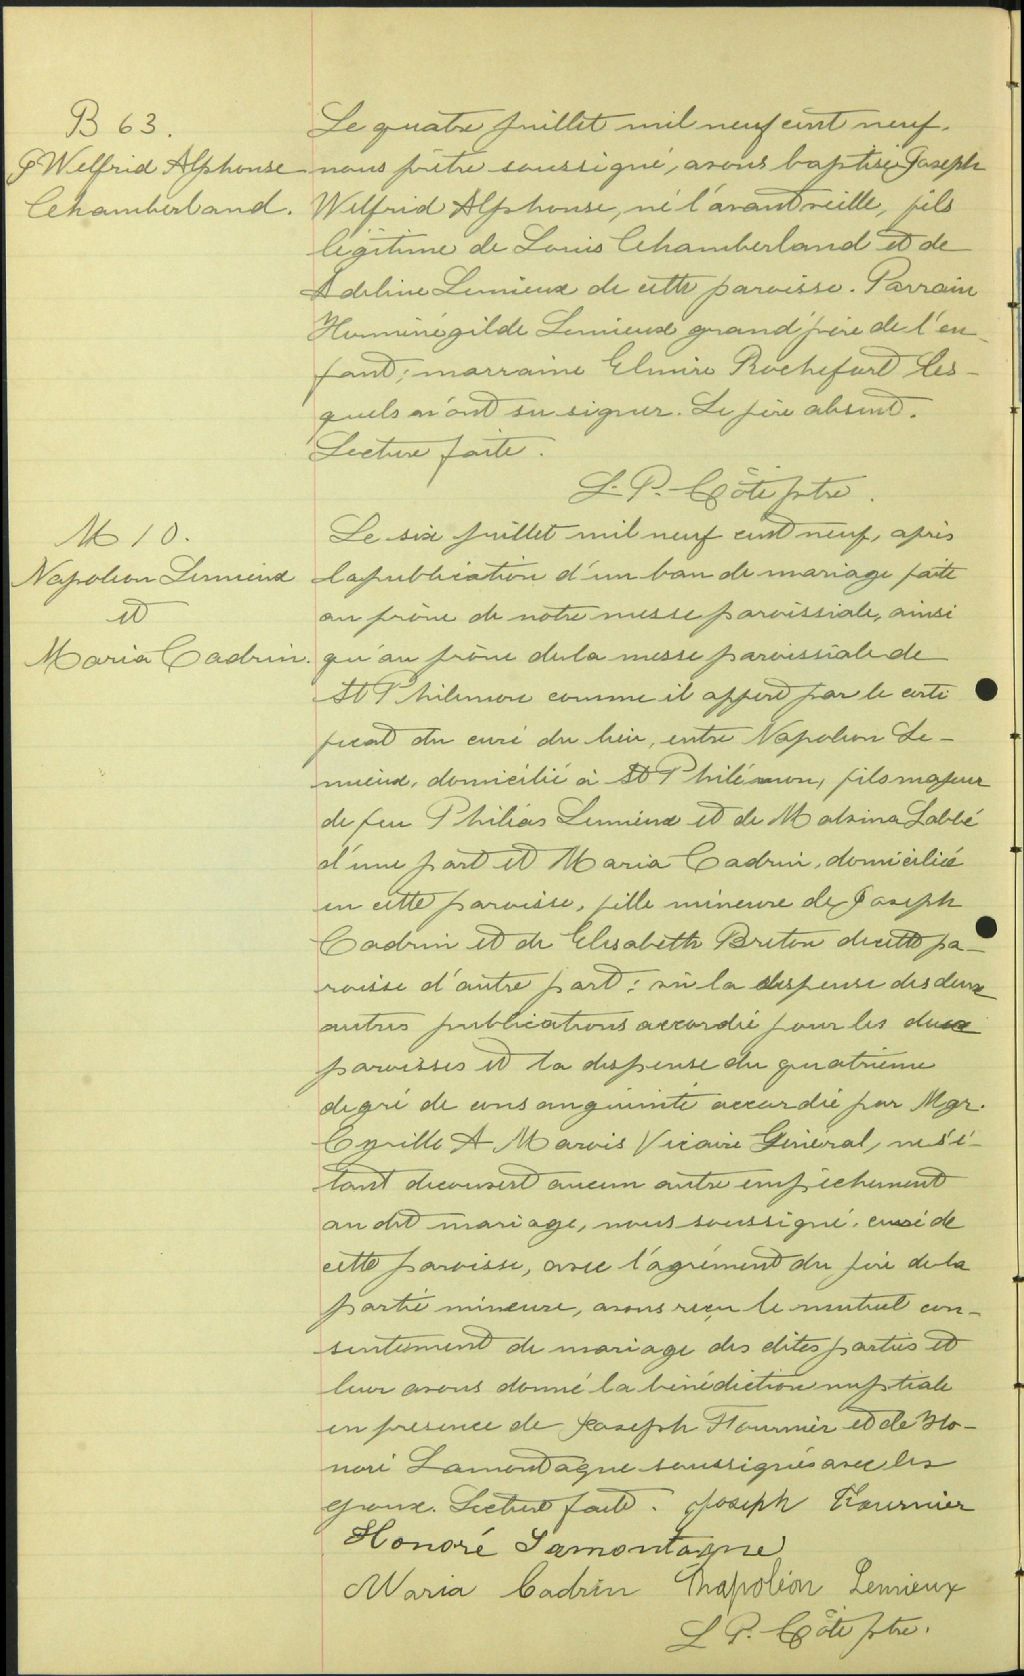 B 63.
J Wilfrid Alphonse
Chamberland.
Le quatre juillet mil neuf cent neuf,
nous prêtre soussigné, avons baptisé Joseph
Wilfrid Alphonse, né l'avant veille, fils
légitime de Louis Chamberland et de
Adeline Lemieux de cette paroisse. Parrain
Herménégilde Lemieux grand'père de l'en-
fant; marraine Elmire Rochefort les-
quels n'ont su signer. Le père absent.
Lecture faite.
L. P. Côté ptre.
M 10.
Napoleon Lemieux
et
Maria Cadrin.
Le six juillet mil neuf cent neuf, après
la publication d'un ban de mariage faite
au prône de notre messe paroissiale, ainsi
qu'au prône de la messe paroissiale de
St Philemon comme il appert par le certi
ficat du curé du lieu, entre Napoleon Le-
mieux, domicilié à St Philémon, fils majeur
de feu Philéas Lemieux et de Malvina Labbé
d'une part et Maria Cadrin, domiciliée
en cette paroisse, fille mineure de Joseph
Cadrin et de Elisabeth Breton de cette pa-
roisse d'autre part: vu la dispense des deux
autres publications accordée pour les deux
paroisses et la dispense du quatrième
degré de consanguinité accordée par Mgr.
Cyrille A Marois Vicaire Général, ne s'é-
tant decouvert aucun autre empêchement
au dit mariage, nous soussigné, curé de
cette paroisse, avec l'agrément du père de la
partie mineure, avons reçu le mutuel con-
sentement de mariage des dites parties et
leur avons donné la bénédiction nuptiale
en presence de Joseph Fournier et de Ho-
noré Lamontagne soussignés avec les
époux. Lecture faite. Joseph Fournier
Honoré Lamontagne
Maria Cadrin Napoléon Lemieux
L P. Côté ptre.